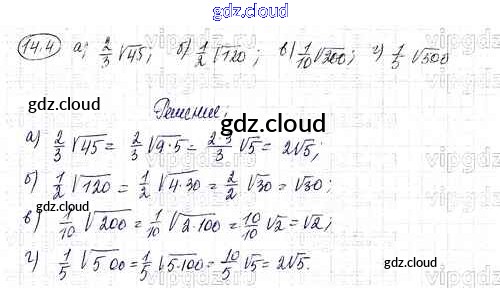 gdz.cloud
14.4 а) 2/3 √45; б) 1/2 √120; в) 1/10 √200; г) 1/5 √500
gdz.cloud
Решение;
gdz.cloud
а) 2/3 √45 = 2/3 √9·5 = 2·3/3 √5 = 2√5;
б) 1/2 √120 = 1/2 √4·30 = 2/2 √30 = √30;
gdz.cloud
в) 1/10 √200 = 1/10 √2·100 = 10/10 √2 = √2;
г) 1/5 √500 = 1/5 √5·100 = 10/5 √5 = 2√5.
gdz.cloud